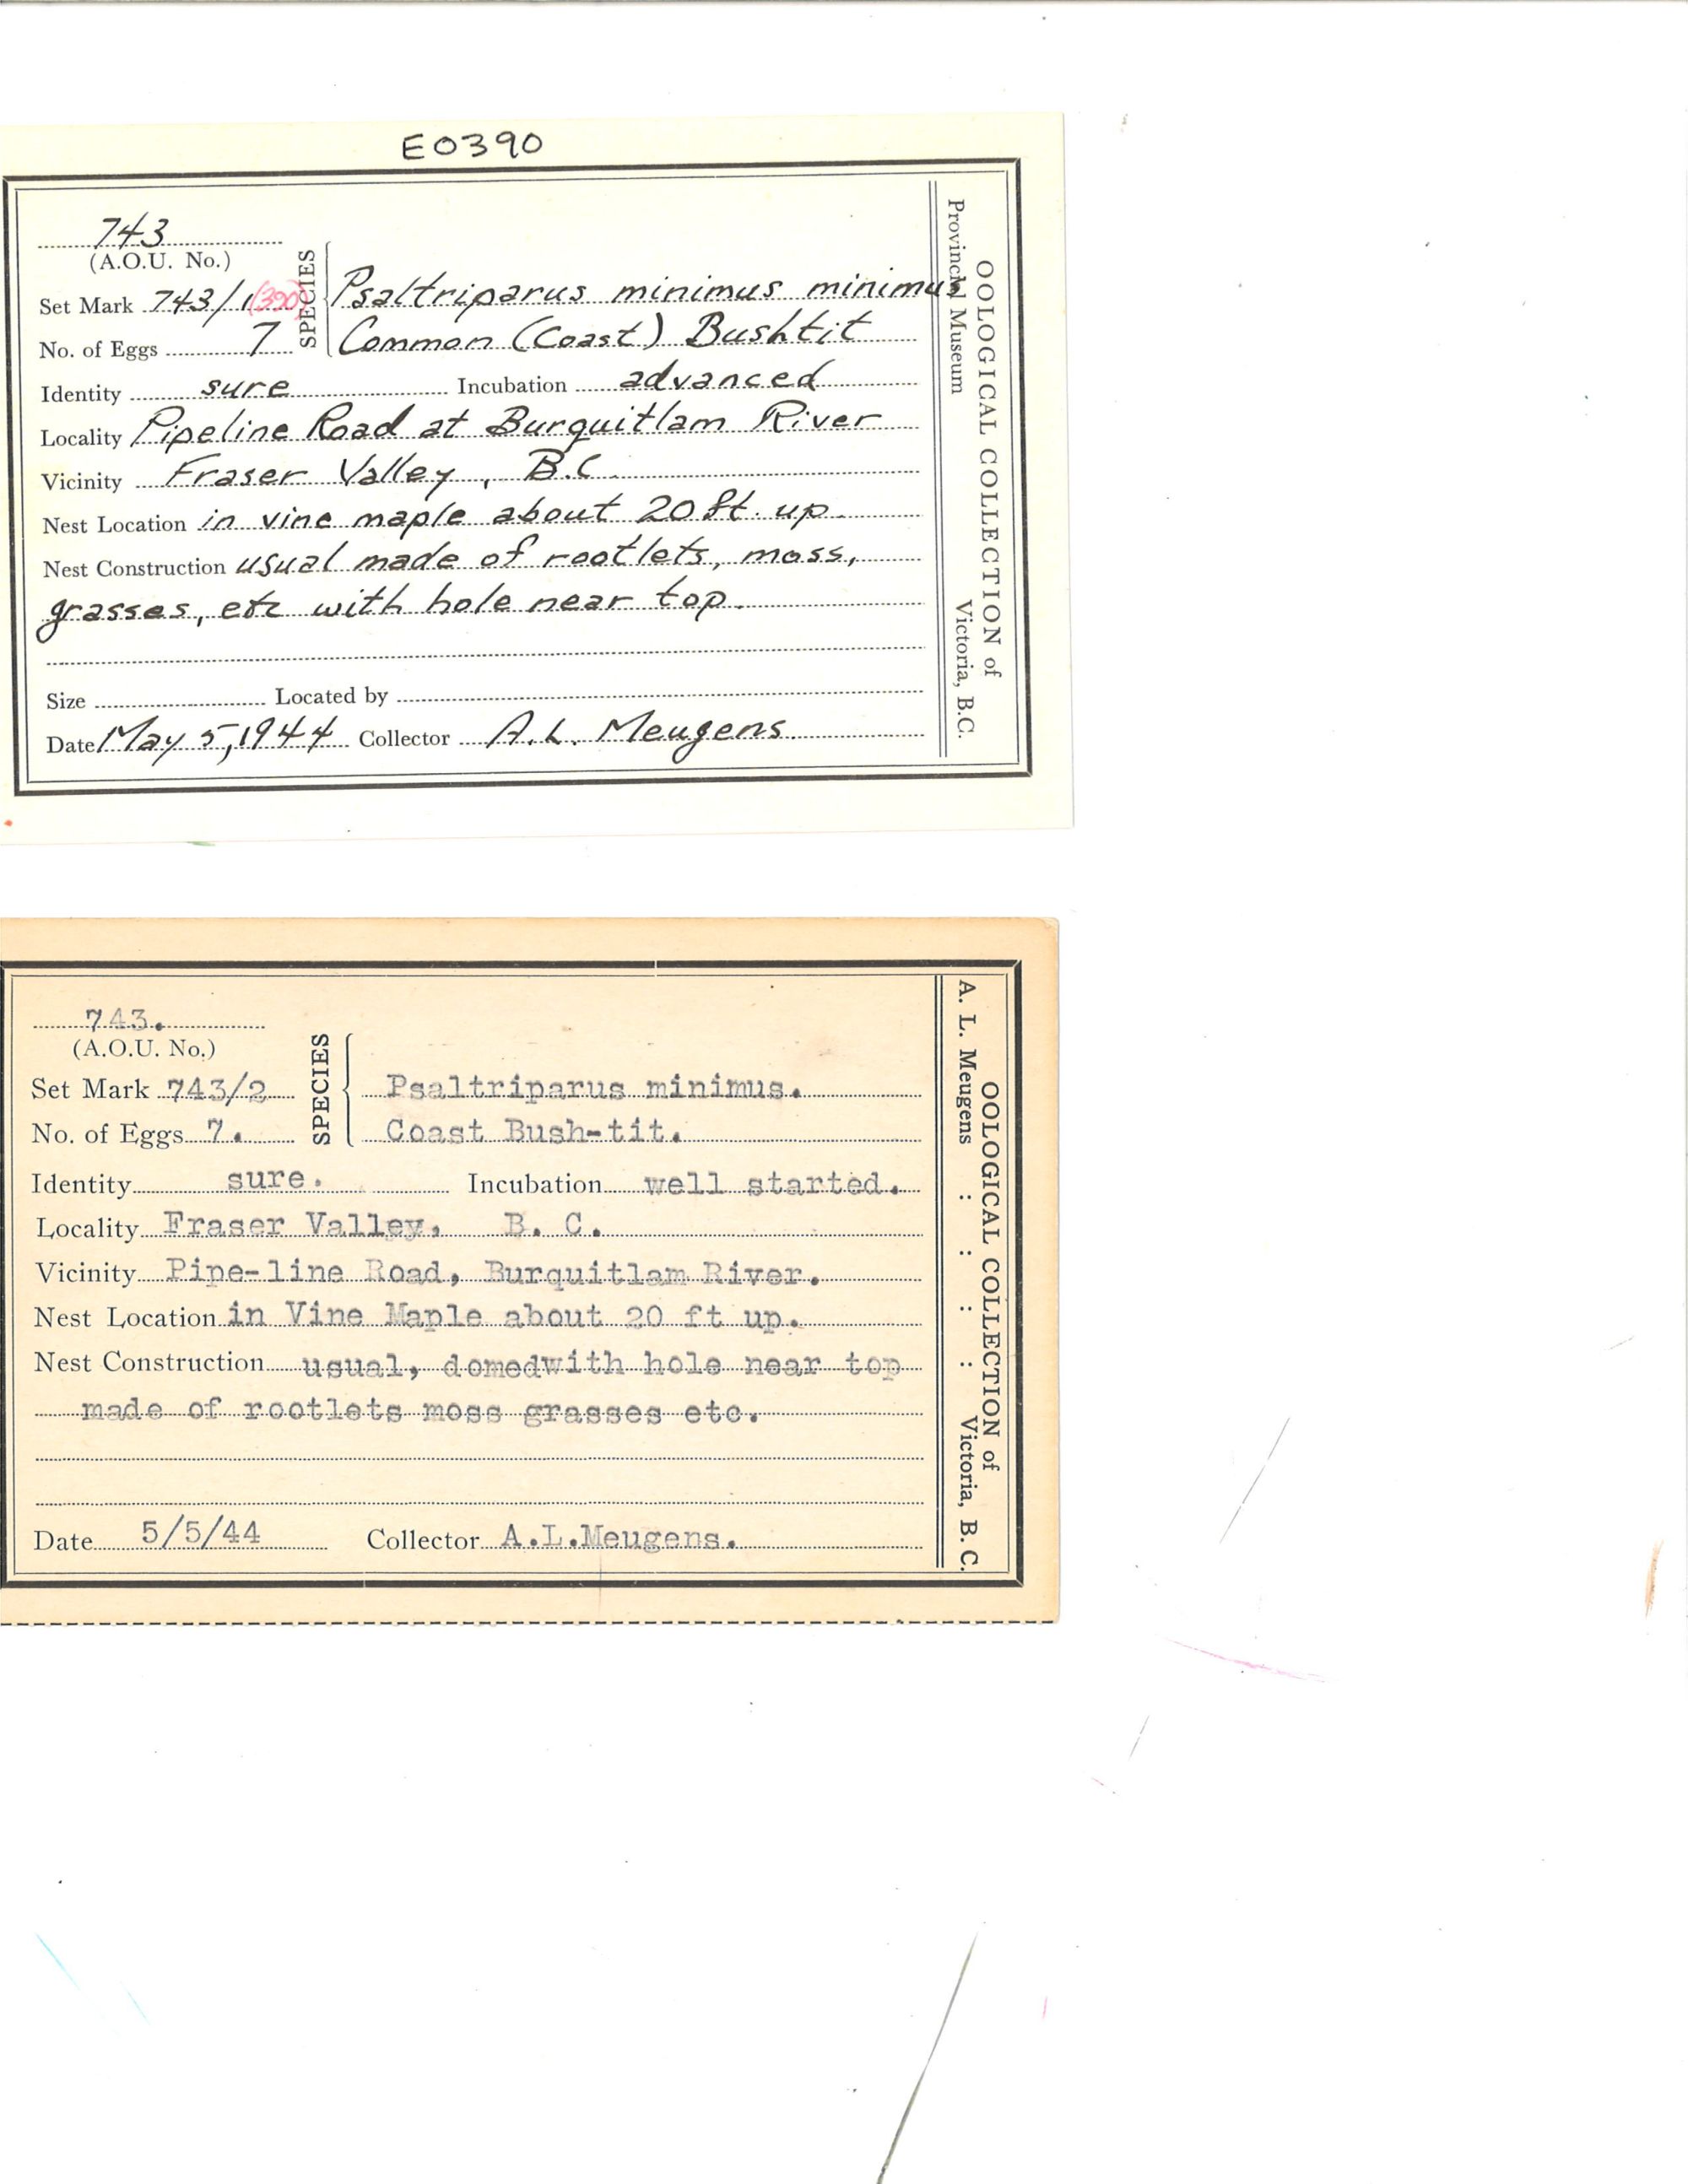 E0390
743
(A.O.U. No.)
Set Mark 743/1 (390)
No. of Eggs 7
SPECIES
Psaltriparus minimus minimus
Common (Coast) Bushtit
Identity sure Incubation advanced
Locality Pipeline Road at Burquitlam River
Vicinity Fraser Valley, B.C.
Nest Location in vine maple about 20 ft. up.
Nest Construction usual made of rootlets, moss,
grasses, etc with hole near top.
Size Located by
Date May 5, 1944 Collector A.L. Meugens
OOLOGICAL COLLECTION of
Provincial Museum Victoria, B.C.
743.
(A.O.U. No.)
Set Mark 743/2
No. of Eggs 7.
SPECIES
Psaltriparus minimus.
Coast Bush-tit.
Identity sure. Incubation well started.
Locality Fraser Valley, B. C.
Vicinity Pipe-line Road, Burquitlam River.
Nest Location in Vine Maple about 20 ft up.
Nest Construction usual, domedwith hole near top
made of rootlets moss grasses etc.
Date 5/5/44 Collector A.L.Meugens.
OOLOGICAL COLLECTION of
A. L. Meugens : : : : Victoria, B. C.